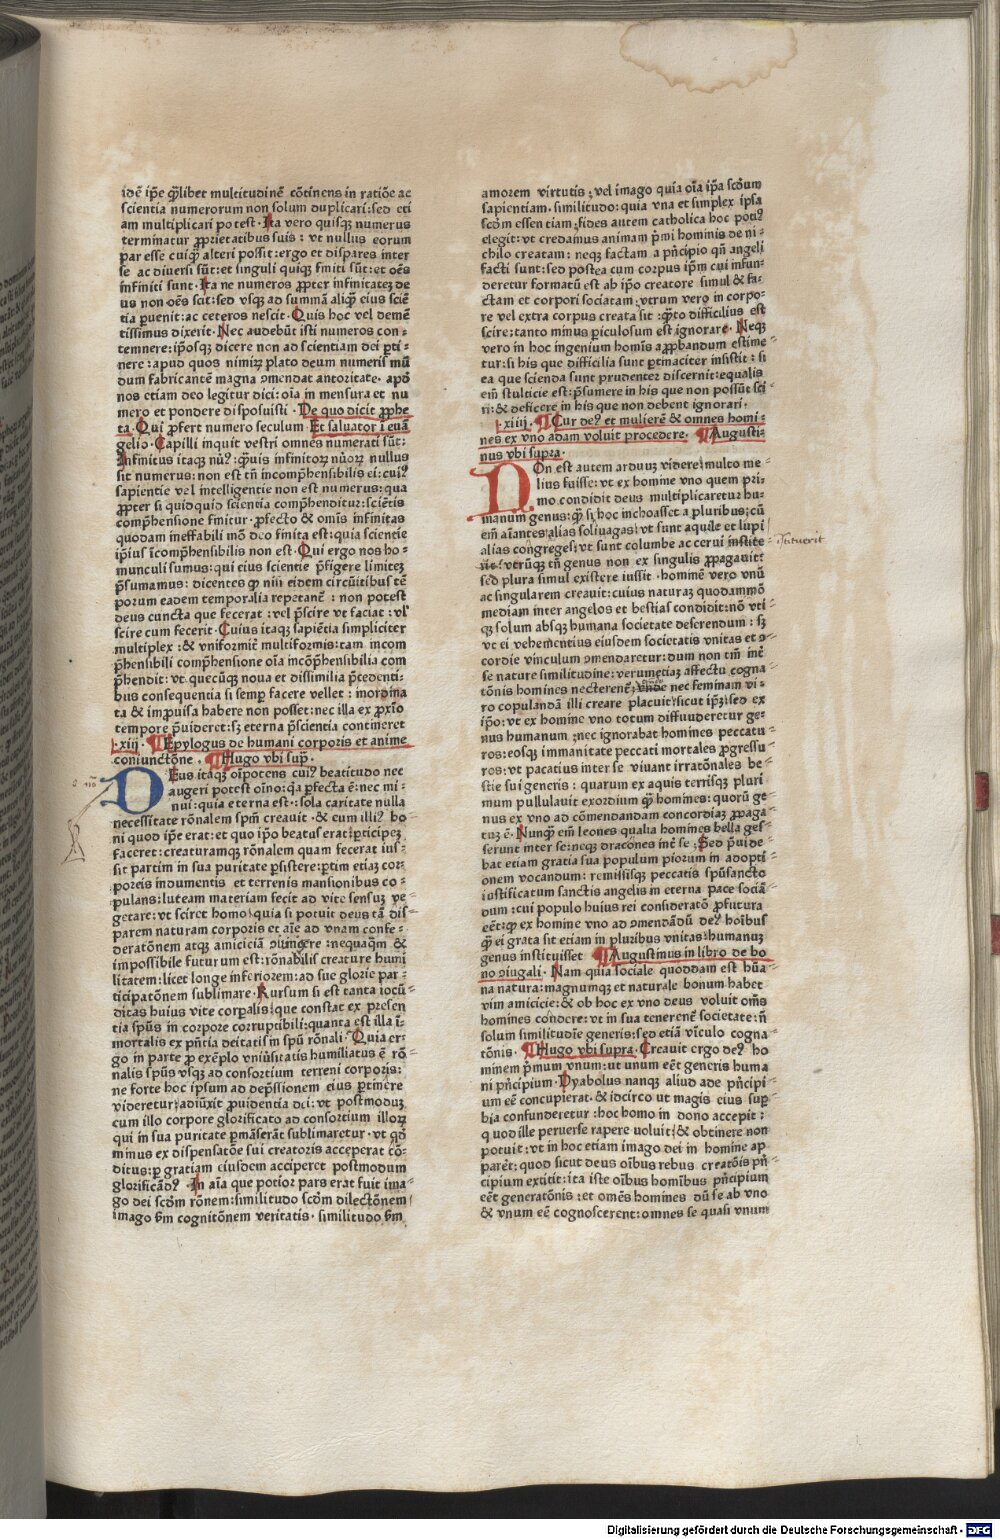 idē ip̄e q̄libet multitudinē cōtinens in ratiōe ac
scientia numerorum non solum duplicari: sed eti
am multiplicari potest. Ita vero quisq; numerus
terminatur ꝓprietatibus suis: vt nullus eorum
par esse cuiq̄ alteri possit: ergo et dispares inter
se ac diuersi sūt: et singuli quiq; finiti sūt: et oēs
infiniti sunt. Ita ne numeros ꝓpter infinitatez de
us non oēs scit: sed vsq; ad summā aliq̄ eius sciē
tia ꝑuenit: ac ceteros nescit. Quis hoc vel demē
tissimus dixerit. Nec audebūt isti numeros con⸗
temnere: ip̄osq; dicere non ad scientiam dei ꝑti⸗
nere: apud quos nimiꝝ plato deum numeris mū
dum fabricantē magna ꝯmendat autoritate. apō
nos etiam deo legitur dici: oīa in mensura et nu
mero et pondere disposuisti. De quo dicit ꝓphe
ta. Qui ꝓfert numero seculum. Et saluator ī euā
gelio. Capilli inquit vestri omnes numerati sūt:
Infinitus itaq; nūꝰ: q̄uis infinitoꝝ nūoꝝ nullus
sit numerus: non est tn̄ incomp̄hensibilis ei: cuiꝰ
sapientie vel intelligentie non est numerus: qua
ꝓpter si quidquid scientia comp̄henditur: sciētis
comp̄hensione finitur. ꝓfecto & om̄is infinitas
quodam ineffabili mō deo finita est: quia scientie
ip̄ius īcomp̄hensibilis non est. Qui ergo nos ho⸗
munculi sumus: qui eius scientie p̄figere limitez
p̄sumamus: dicentes ꝙ nisi eisdem circūitibus tē
porum eadem temporalia repetanť: non potest
deus cuncta que fecerat: vel p̄scire vt faciat: vl'
scire cum fecerit. Cuius itaq; sapiētia simpliciter
multiplex: & vniformiť multiformis: tam incom
p̄hensibili comp̄hensione oīa īcōp̄hensibilia com
p̄hendit: vt quecūq; noua et dissimilia p̄cedenti⸗
bus consequentia si semꝑ facere vellet: inordina
ta & īprouisa habere non posset: nec illa ex ꝓxīo
tempore p̄uideret: sꝫ eterna p̄scientia contineret
.xiij. ¶ Epylogus de humani corporis et anime
coniunctōne. ¶ Hugo vbi sup̄.
DEus itaq; oīpotens cuiꝰ beatitudo nec
augeri potest oīno: qa ꝑfecta ē: nec mi⸗
nui: quia eterna est: sola caritate nulla
necessitate rōnalem spm̄ creauit. & eum illiꝰ bo⸗
ni quod ip̄e erat: et quo ip̄o beatus erat ꝑticipeꝫ
faceret: creaturamq; rōnalem quam fecerat ius⸗
sit partim in sua puritate ꝑsistere: ꝑtim etiaꝫ cor
poreis indumentis et terrenis mansionibus co⸗
pulans: luteam materiam fecit ad vite sensuꝫ ve⸗
getare: vt sciret homo quia si potuit deus tā dis⸗
parem naturam corporis et aīe ad vnam confe⸗
deratōnem atq; amiciciā ꝯiūgere: nequaq̄m &
impossibile futurum est: rōnabilis creature humi
litatem: licet longe inferiorem: ad sue glorie par⸗
ticipatōnem sublimare. Rursum si est tanta iocū⸗
ditas huius vite corꝑalis: que constat ex presen
tia sp̄us in corpore corruptibili: quanta est illa ī⸗
mortalis ex pn̄tia deitatis in spū rōnali. Quia er⸗
go in parte ꝓ exēplo vniūsitatis humiliatus ē rō⸗
nalis sp̄us vsq; ad consortium terreni corporis:
ne forte hoc ipsum ad dep̄ssionem eius ꝑtinere
videretur: adiūxit ꝓuidentia dei: vt postmoduꝫ
cum illo corpore glorificato ad consortium illoꝝ
qui in sua puritate ꝑmāserāt sublimaretur. vt qd̄
minus ex dispensatōe sui creatoris acceperat cō⸗
ditus: ꝑ gratiam eiusdem acciperet postmodum
glorificādꝰ. In aīa que potior pars erat fuit ima⸗
go dei scdm̄ rōnem: similitudo scdm̄ dilectōnem
imago scdm cognitōnem veritatis. similitudo scdm
amorem virtutis: vel imago quia oīa ip̄a scdūm
sapientiam. similitudo: quia vna et simplex ipsa
scdm̄ essentiam: fides autem catholica hoc potiꝰ
elegit: vt credamus animam p̄mi hominis de ni⸗
chilo creatam: neq; factam a pn̄cipio qn̄ angeli
facti sunt: sed postea cum corpus ip̄m cui infun⸗
deretur formatū est ab ip̄o creatore simul & fa⸗
ctam et corpori sociatam: vtrum vero in corpo⸗
re vel extra corpus creata sit: q̄nto difficilius est
scire: tanto minus ꝑiculosum est ignorare. Neq;
vero in hoc ingenium homīs aꝓbandum estime⸗
tur: si his que difficilia sunt ꝑtinaciter insistit: si
ea que scienda sunt prudenter discernit: equalis
em̄ stulticie est: p̄sumere in his que non possūt sci
ri: & deficere in his que non debent ignorari.
.xiiij. ¶ Cur deꝰ et mulierē & omnes homi⸗
nes ex vno adam voluit procedere. ¶ Augusti⸗
nus vbi supra.
NOn est autem arduuꝫ videre: multo me⸗
lius fuisse: vt ex homine vno quem pri⸗
mo condidit deus multiplicaretur hu⸗
manum genus: q̄ si hoc inchoasset a pluribus: cū
em̄ aīantes alias soliuagas: vt sunt aquile et lupi
alias congreges: vt sunt columbe ac cerui institu⸗
ī̄stituerit
rit: vtrūq; tn̄ genus non ex singulis ꝓpagauit:
sed plura simul existere iussit. hominē vero vnū
ac singularem creauit: cuius naturaꝫ quodammō
mediam inter angelos et bestias condidit: nō vti
q; solum absq; humana societate deserendum: sꝫ
vt ei vehementius eiusdem societatis vnitas et ꝯ⸗
cordie vinculum ꝯmendaretur: dum non tm̄ inť
se nature similitudine: verumetiaꝫ affectu cogna⸗
tōnis homines necterent: vnde nec feminam vi⸗
ro copulandā illi creare placuit sicut ip̄ꝫ: sed ex
ip̄o: vt ex homine vno totum diffunderetur ge⸗
nus humanum: nec ignorabat homines peccatu⸗
ros: eosq; immanitate peccati mortales ꝓgressu⸗
ros: vt pacatius inter se viuant irratōnales be⸗
stie sui generis: quarum ex aquis terrisq; pluri⸗
mum pullulauit exordium q̄ homines: quorū ge⸗
nus ex vno ad cōmendandam concordiaꝫ ꝓpaga⸗
tuꝫ ē. Nunq̄ em̄ leones qualia homines bella ges⸗
serunt inter se: neq; dracones inť se. Sed p̄uide⸗
bat etiam gratia sua populum piorum in adopti⸗
onem vocandum: remissisq; peccatis spūsancto
iustificatum sanctis angelis in eterna pace sociā⸗
dum: cui populo huius rei consideratō ꝓfutura
eēt: ꝙ ex homine vno ad ꝯmendādū deꝰ hoībus
q̄ ei grata sit etiam in pluribus vnitas: humanuꝫ
genus instituisset. ¶ Augustinus in libro de bo
no ꝯiugali. Nam quia sociale quoddam est hūa⸗
na natura: magnumq; et naturale bonum habet
vim amicicie: & ob hoc ex vno deus voluit om̄s
homines condere: vt in sua tenerent societate: n̄
solum similitudīe generis: sed etiā vīculo cogna⸗
tōnis. ¶ Hugo vbi supra. Creauit ergo deꝰ ho
minem p̄mum vnum: ut unum eēt generis huma
ni pn̄cipium. Dyabolus nanq; aliud a deo pn̄cipi⸗
um eē concupierat. & idcirco ut magis eius suꝑ⸗
bia confunderetur: hoc homo in dono accepit:
quod ille peruerse rapere voluit & obtinere non
potuit: vt in hoc etiam imago dei in homine ap⸗
parēt: quod sicut deus oībus rebus creatōis pn̄⸗
cipium extitit: ita iste oībus homībus pn̄cipium
eēt generatōnis: et om̄s homines dū se ab vno
& vnum eē cognoscerent: omnes se quasi vnum
Digitalisierung gefördert durch die Deutsche Forschungsgemeinschaft - DFG